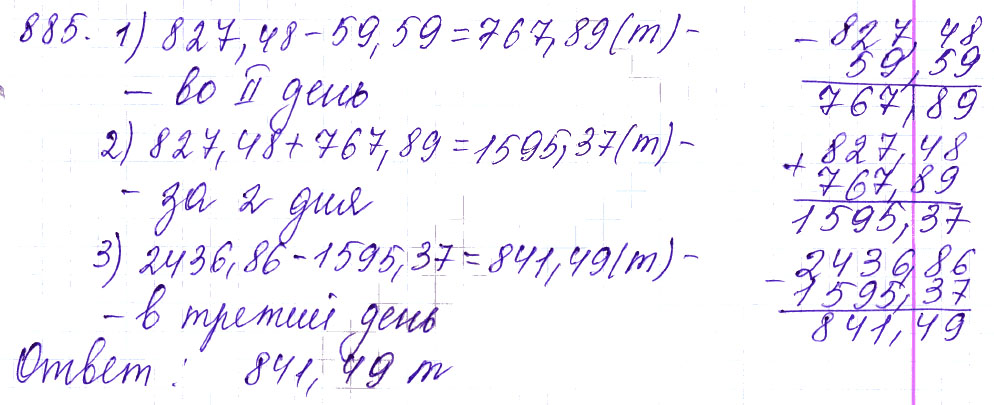 885. 1) 827,48 - 59,59 = 767,89 (т) -
- во II день
2) 827,48 + 767,89 = 1595,37 (т) -
- за 2 дня
3) 2436,86 - 1595,37 = 841,49 (т) -
- в третий день
Ответ : 841,49 т
- 827,48
59,59
767,89
+ 827,48
767,89
1595,37
- 2436,86
1595,37
841,49